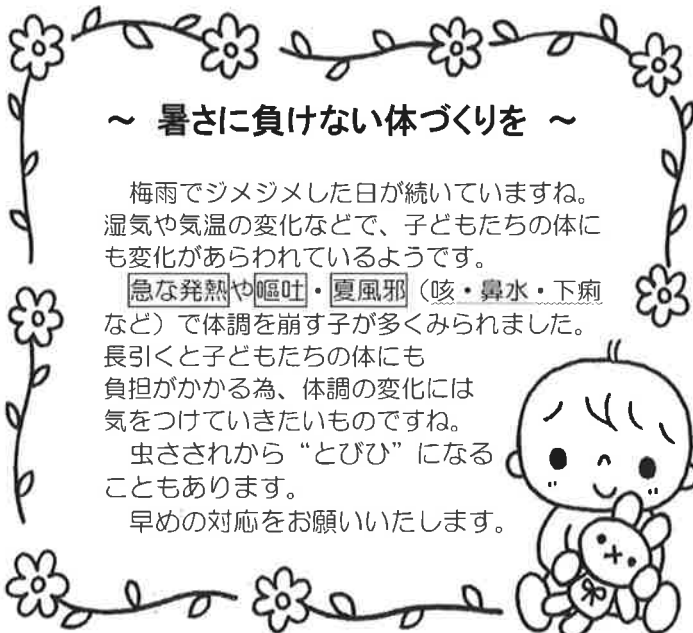 ～ 暑さに負けない体づくりを ～
梅雨でジメジメした日が続いていますね。
湿気や気温の変化などで、子どもたちの体に
も変化があらわれているようです。
急な発熱や嘔吐・夏風邪（咳・鼻水・下痢
など）で体調を崩す子が多くみられました。
長引くと子どもたちの体にも
負担がかかる為、体調の変化には
気をつけていきたいものですね。
虫さされから“とびひ”になる
こともあります。
早めの対応をお願いいたします。